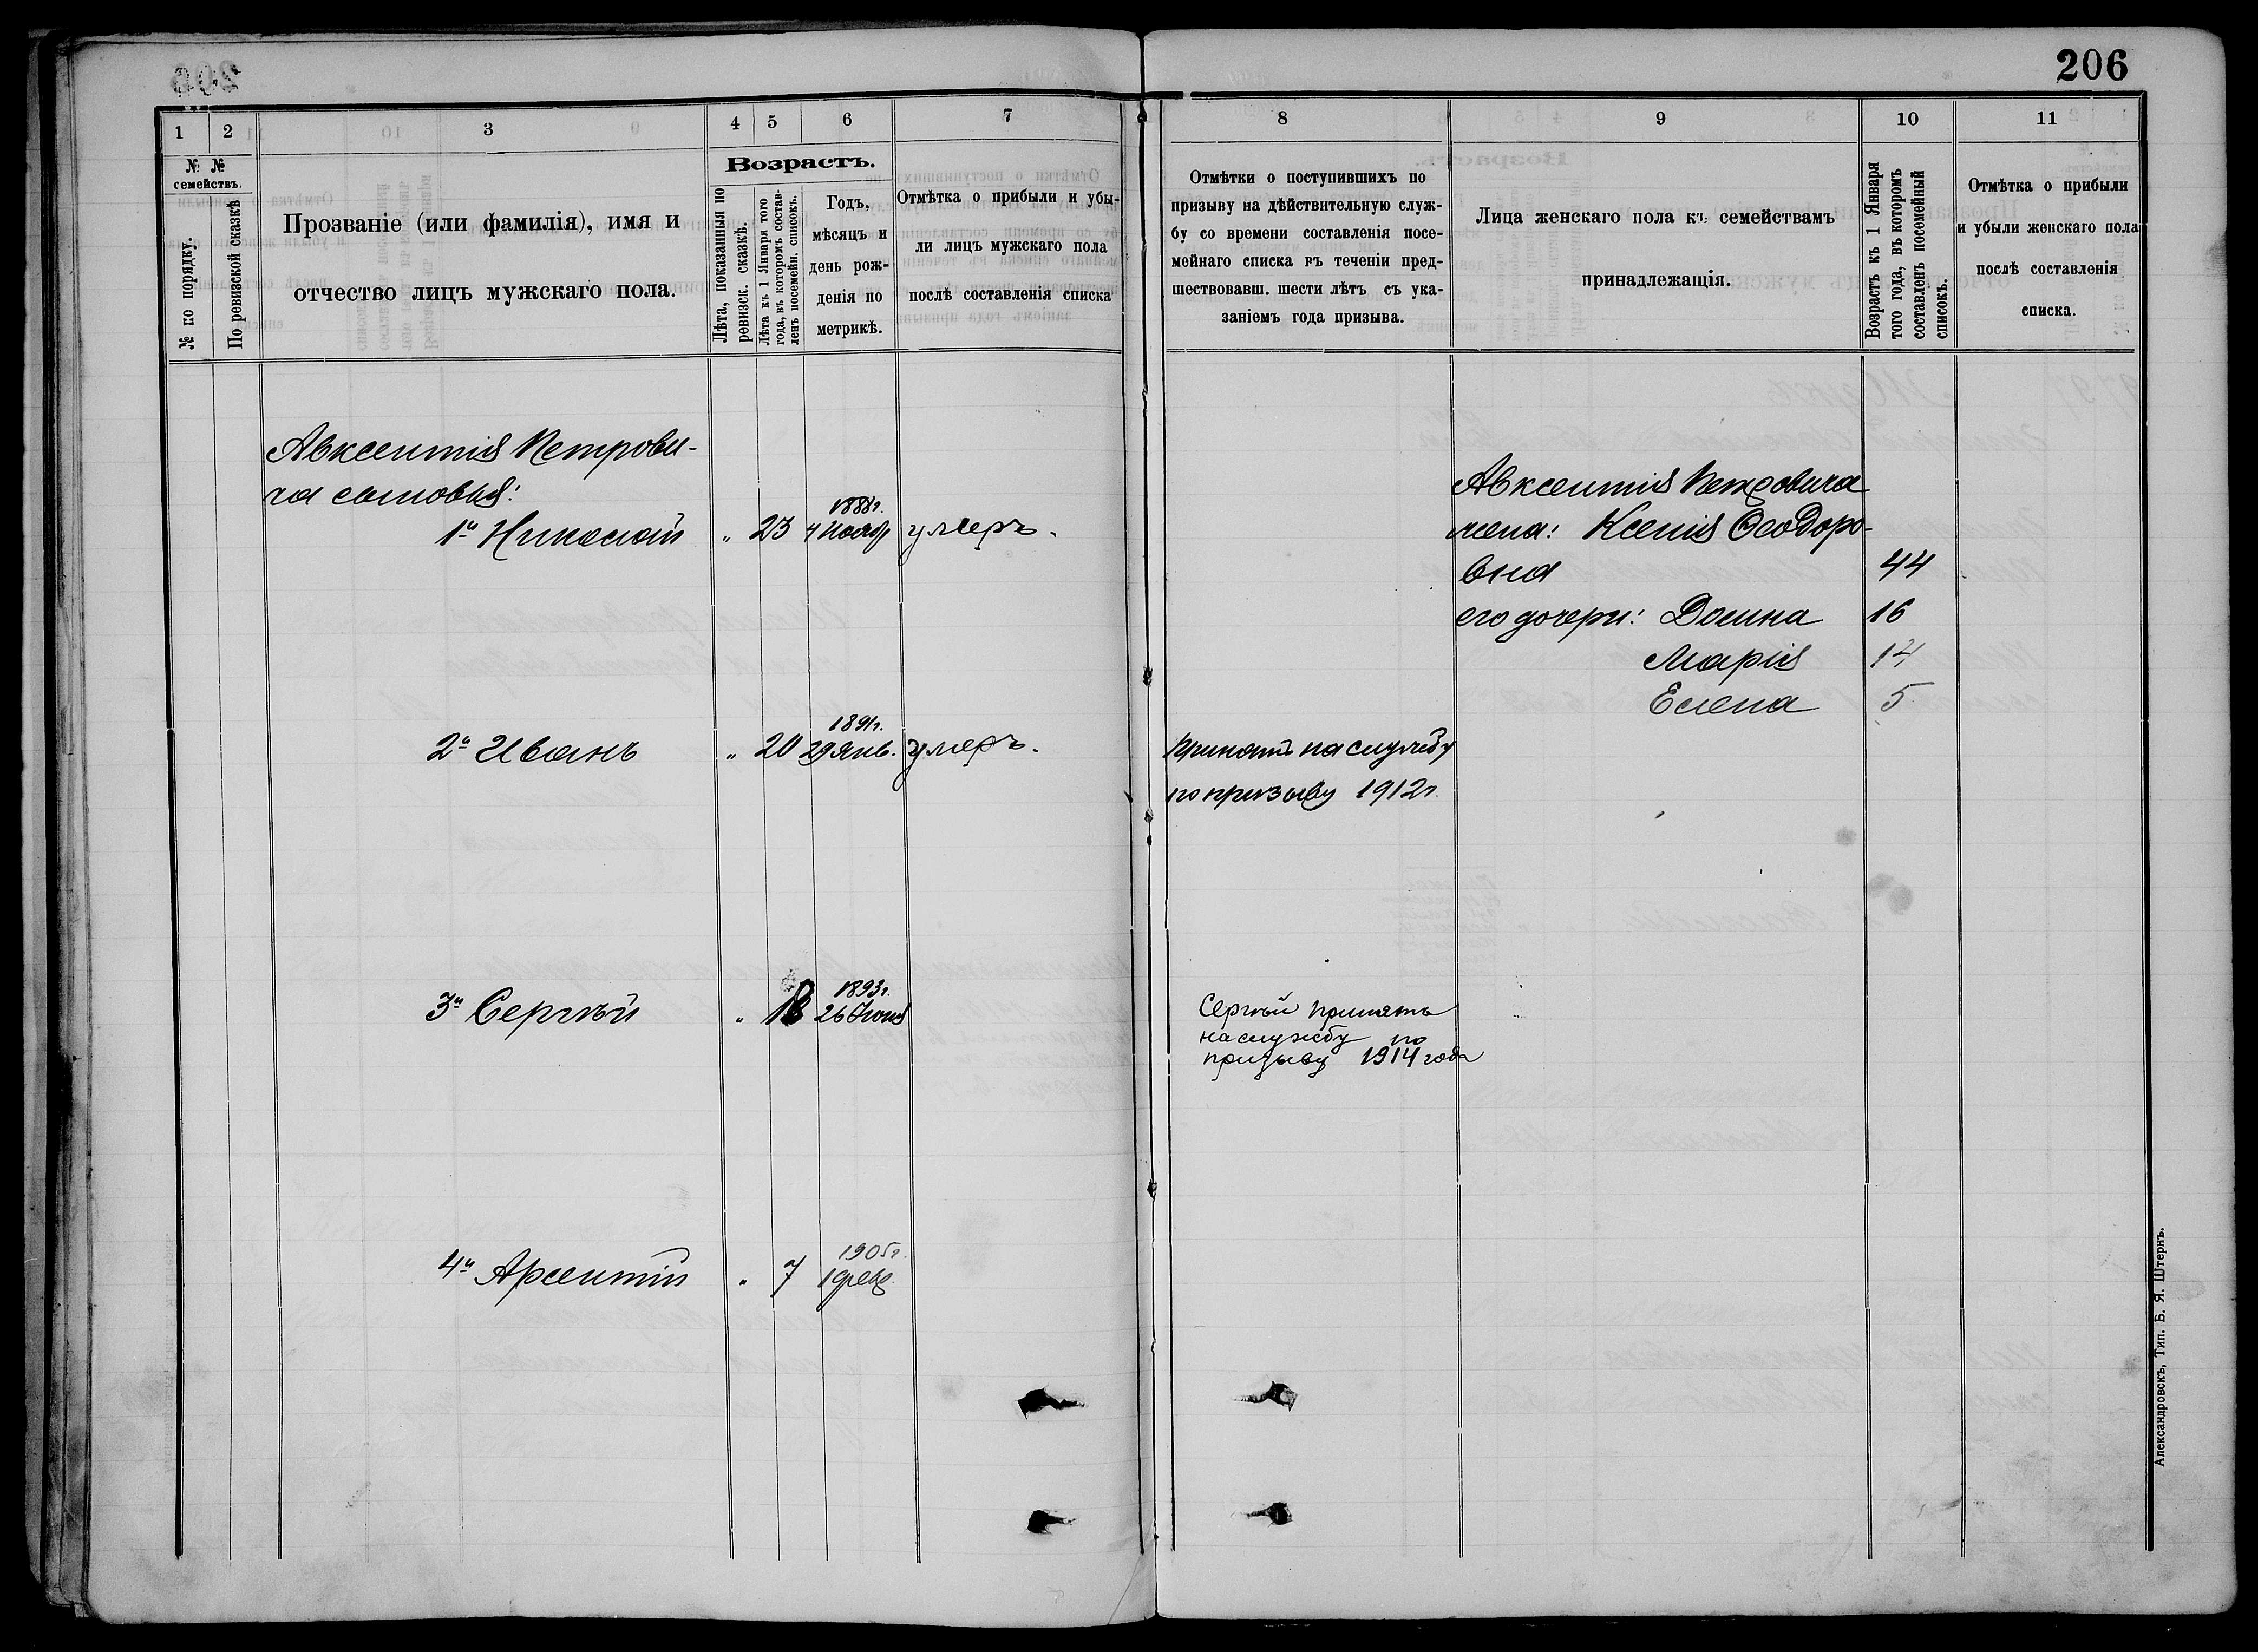 206
1
2
3
4
5
6
7
8
9
10
11
№ №
семействъ.
№ по порядку.
По ревизской сказкѣ
Прозваніе (или фамилія), имя и
отчество лицъ мужскаго пола.
Возрастъ.
Лѣта, показанныя по
ревизск. сказкѣ.
Лѣта къ 1 Января того
года, въ которомъ состав-
ленъ посемейн. списокъ.
Годъ,
мѣсяцъ и
день рож-
денія по
метрикѣ.
Отмѣтка о прибыли и убы-
ли лицъ мужскаго пола
послѣ составленія списка
Отмѣтки о поступившихъ по
призыву на дѣйствительную служ-
бу со времени составленія посе-
мейнаго списка въ теченіи пред-
шествовавш. шести лѣтъ съ ука-
заніемъ года призыва.
Лица женскаго пола къ семействамъ
принадлежащія.
Возрастъ къ 1 Января
того года, въ которомъ
составленъ посемейный
списокъ.
Отмѣтка о прибыли
и убыли женскаго пола
послѣ составленія
списка.
Авксентія Петрови-
ча сыновья:
1й Николай „ 23 1888г. 4 Нояб умеръ.
2й Иванъ „ 20 1891г. 29 Янв. умеръ.
Принятъ на службу
по призыву 1912г
3й Сергѣй „ 18 1893г. 26 Іюня
Сергѣй принятъ
на службу по
призыву 1914 года
4й Арсентій „ 7 1905г. 1 Февр.
Авксентія Петровича
жена: Ксенія Ѳеодоро-
вна 44
его дочери: Домна 16
Марія 14
Елена 5
Александровскъ, Тип. Б. Я. Штернъ.